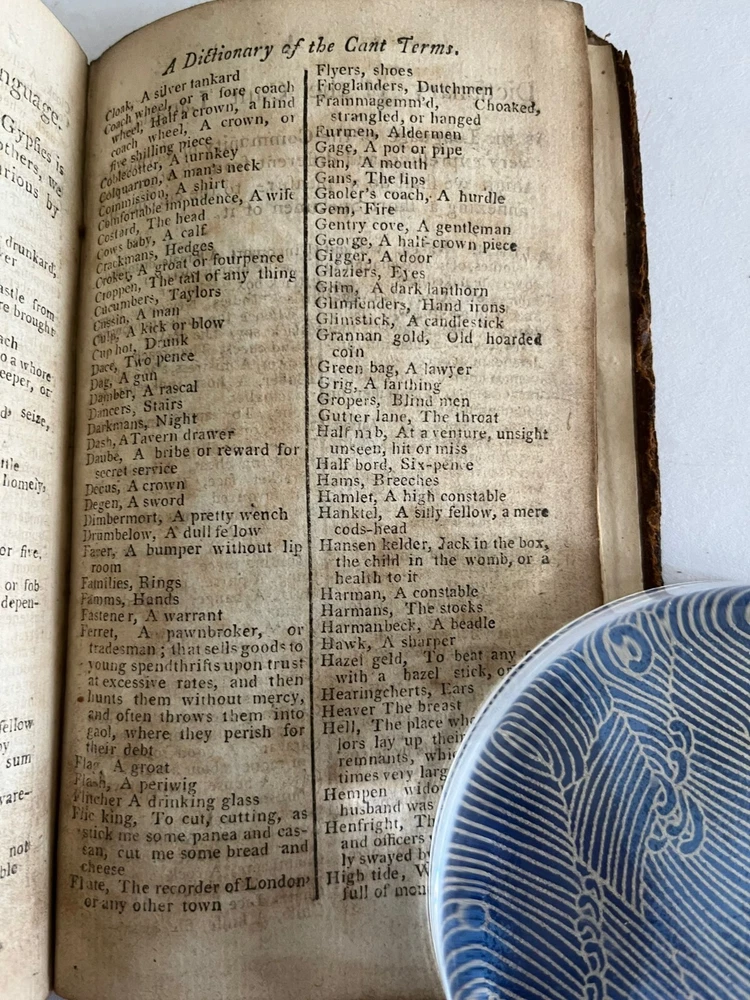 nguage.
Gypsies is
others, we
rious by
drunkard,
ver
astle from
re brought
ach
o a whore-
eeper, or
d, seize,
ttle
homely,
or five,
or fob
depen-
fellow
by
sum
ware-
not
ble
A Dictionary of the Cant Terms.
Cloak, A silver tankard
Coach wheel, or a fore coach
wheel, Half a crown, a hind
coach wheel, A crown, or
five shilling piece
Coblecotter, A turnkey
Colquarron, A man's neck
Commission, A shirt
Comfortable impudence, A wife
Costard, The head
Cows baby, A calf
Crackmans, Hedges
Croker, A groat or fourpence
Croppen, The tail of any thing
Cucumbers, Taylors
Cussin, A man
Culp, A kick or blow
Cup hot, Drunk
Dace, Two pence
Dag, A gun
Damber, A rascal
Dancers, Stairs
Darkmans, Night
Dash, A Tavern drawer
Daube, A bribe or reward for
secret service
Decus, A crown
Degen, A sword
Dimbermort, A pretty wench
Drumbelow, A dull fe low
Facer, A bumper without lip
room
Families, Rings
Famms, Hands
Fastener, A warrant
Ferret, A pawnbroker, or
tradesman; that sells goods to
young spendthrifts upon trust
at excessive rates, and then
hunts them without mercy,
and often throws them into
gaol, where they perish for
their debt
Flag, A groat
Flash, A periwig
Flincher A drinking glass
Flic king, To cut, cutting, as
stick me some panea and cas-
san, cut me some bread and
cheese
Flute, The recorder of London
or any other town
Flyers, shoes
Froglanders, Dutchmen
Frammagemm'd, Choaked,
strangled, or hanged
Furmen, Aldermen
Gage, A pot or pipe
Gan, A mouth
Gans, The lips
Gaoler's coach, A hurdle
Gem, Fire
Gentry cove, A gentleman
George, A half-crown piece
Gigger, A door
Glaziers, Eyes
Glim, A dark lanthorn
Glimfenders, Hand irons
Glimstick, A candlestick
Grannan gold, Old hoarded
coin
Green bag, A lawyer
Grig, A farthing
Gropers, Blind men
Gutter lane, The throat
Half nab, At a venture, unsight
unseen, hit or miss
Half bord, Six-pence
Hams, Breeches
Hamlet, A high constable
Hanktel, A silly fellow, a mere
cods-head
Hansen kelder, Jack in the box,
the child in the womb, or a
health to it
Harman, A constable
Harmans, The stocks
Harmanbeck, A beadle
Hawk, A sharper
Hazel geld, To beat any
with a hazel stick, or
Hearingcherts, Ears
Heaver The breast
Hell, The place whe
lors lay up their
remnants, whic
times very larg
Hempen widow
husband was
Henfright, Th
and officers
ly swayed b
High tide, W
full of mon